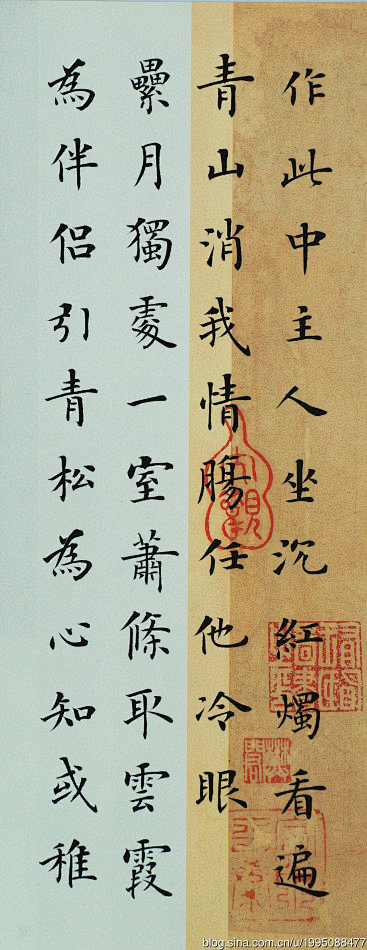 作此中主人坐沉紅燭看遍
青山消我情腸任他冷眼
纍月獨處一室蕭條取雲霞
為伴侶引青松為心知或稚
blog.sina.com.cn/u/1995088477